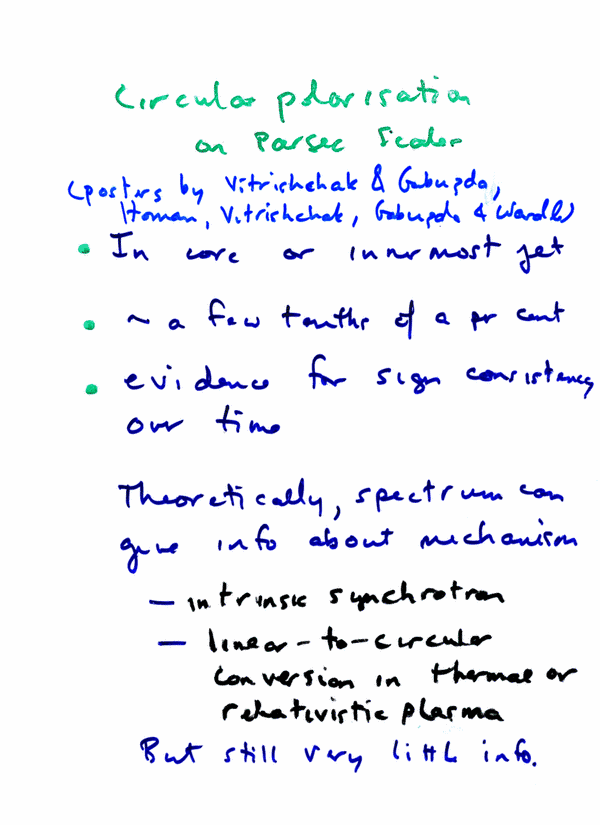 Circular polarisation
on Parsec Scales
(posters by Vitrishchak & Gabuzda,
Homan, Vitrishchak, Gabuzda & Wardle)
• In core or innermost jet
• ~ a few tenths of a per cent
• evidence for sign consistency
over time
Theoretically, spectrum can
give info about mechanism
— intrinsic synchrotron
— linear-to-circular
conversion in thermal or
relativistic plasma
But still very little info.